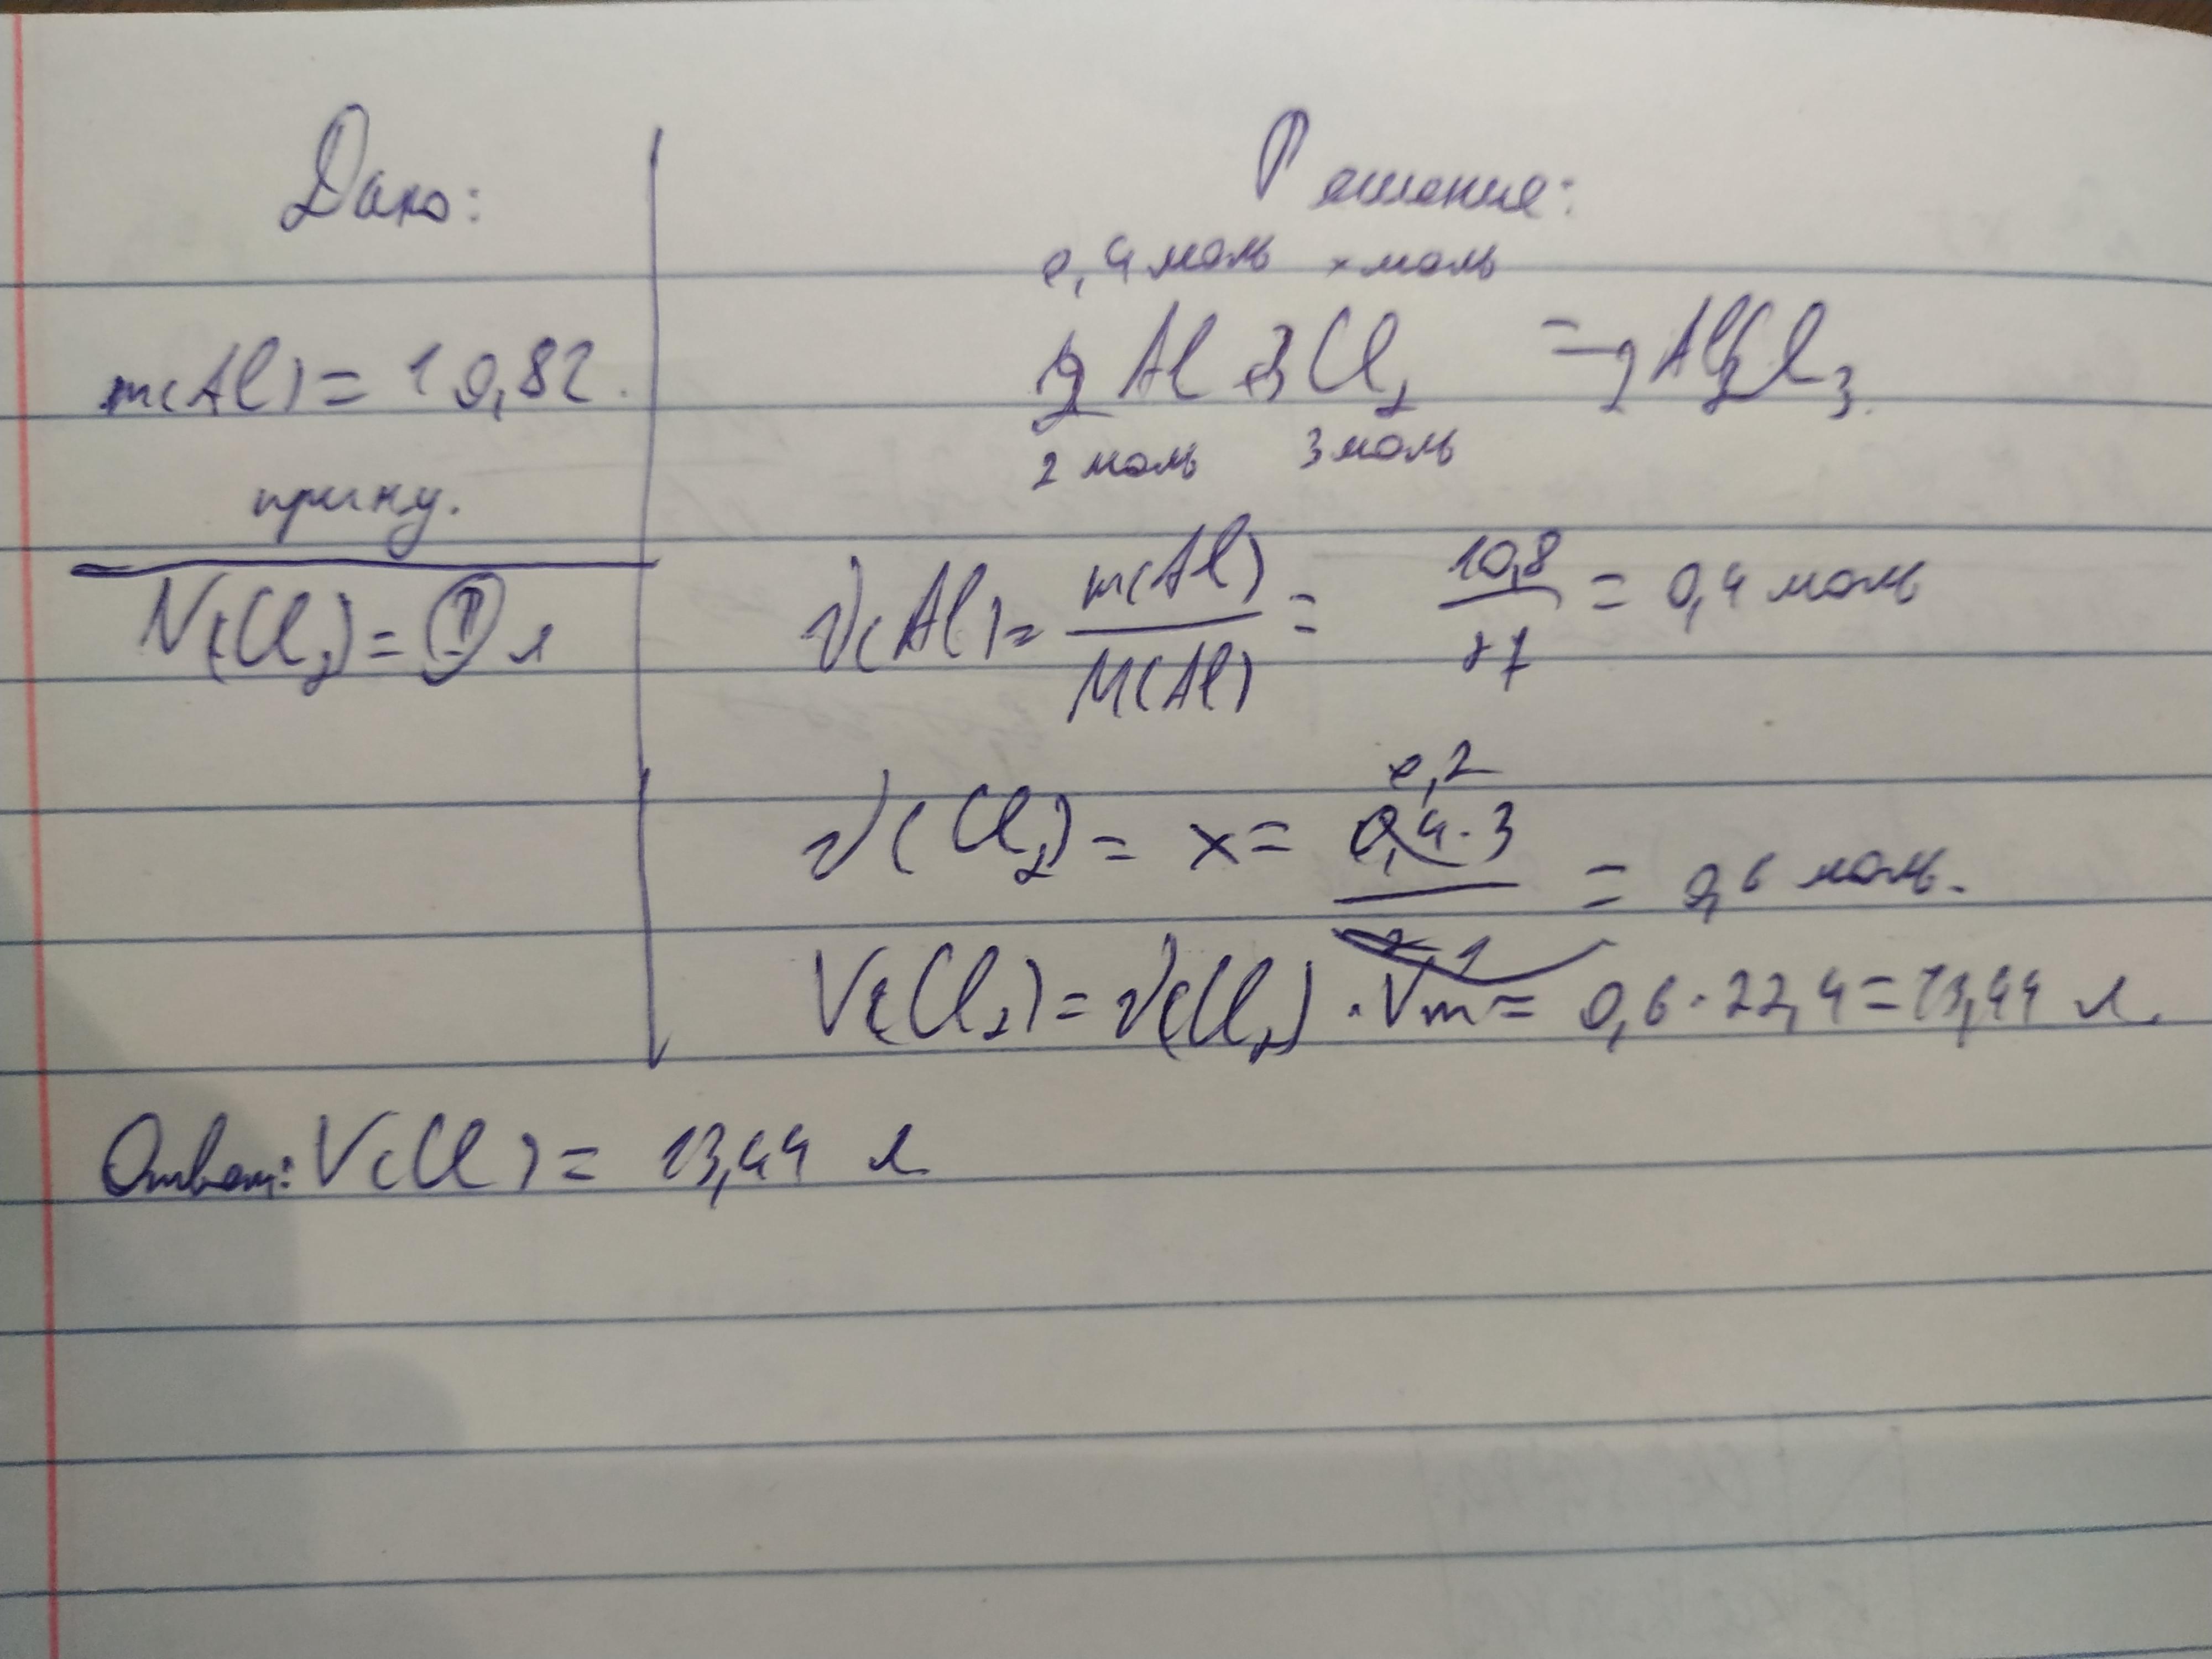 Дано:
m(Al) = 10,8г.
при н.у.
V(Cl₂) = ? л
Решение:
0,4 моль х моль
2Al + 3Cl₂ = 2AlCl₃
2 моль 3 моль
ν(Al) = m(Al) / M(Al) = 10,8 / 27 = 0,4 моль
0,2
ν(Cl₂) = x = 0,4·3 / 2 1 = 0,6 моль.
V(Cl₂) = ν(Cl₂) · Vm = 0,6 · 22,4 = 13,44 л.
Ответ: V(Cl) = 13,44 л